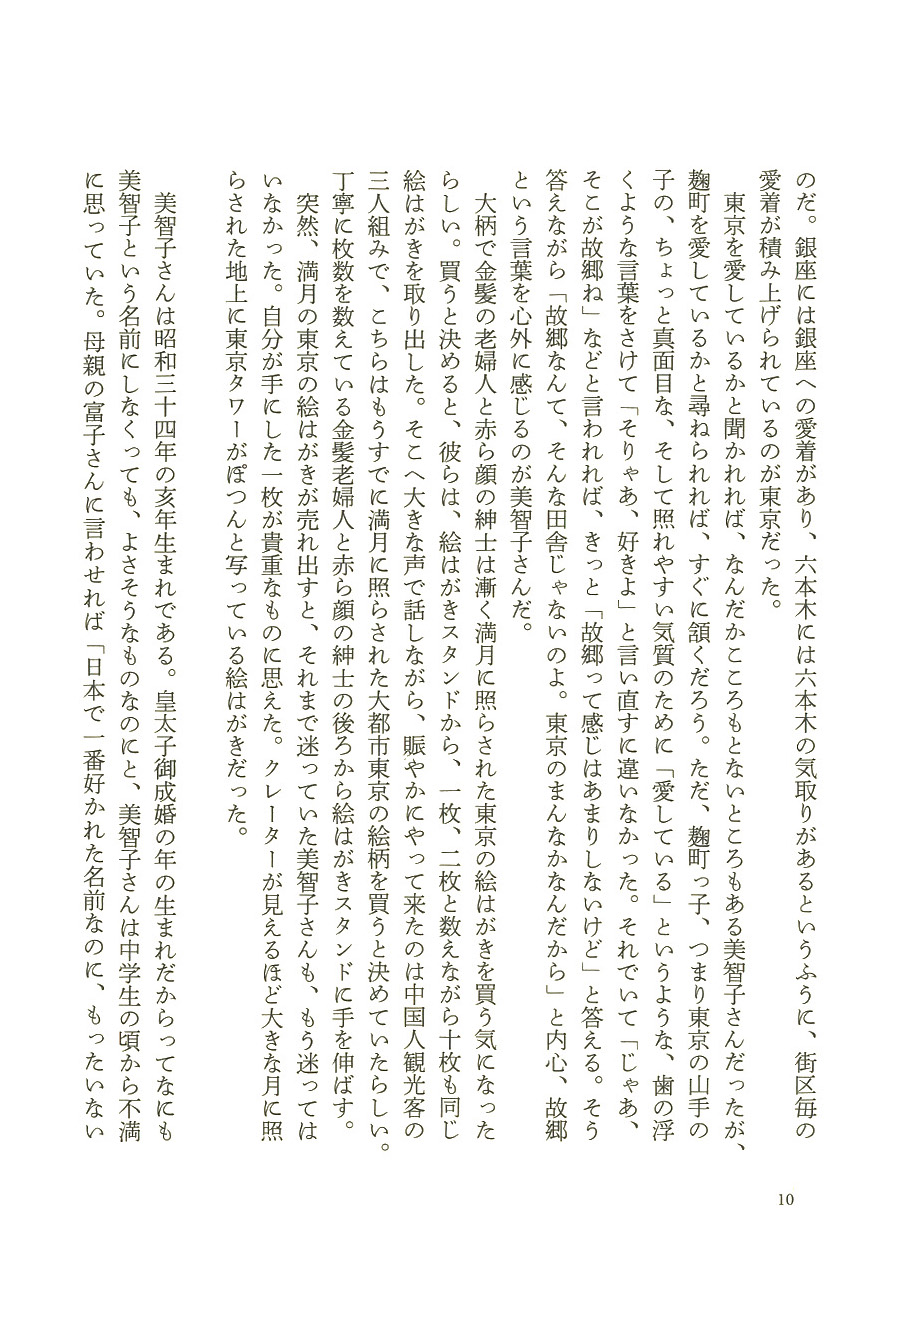 のだ。銀座には銀座への愛着があり、六本木には六本木の気取りがあるというふうに、街区毎の
愛着が積み上げられているのが東京だった。
　東京を愛しているかと聞かれれば、なんだかこころもとないところもある美智子さんだったが、
麹町を愛しているかと尋ねられれば、すぐに頷くだろう。ただ、麹町っ子、つまり東京の山手の
子の、ちょっと真面目な、そして照れやすい気質のために「愛している」というような、歯の浮
くような言葉をさけて「そりゃあ、好きよ」と言い直すに違いなかった。それでいて「じゃあ、
そこが故郷ね」などと言われれば、きっと「故郷って感じはあまりしないけど」と答える。そう
答えながら「故郷なんて、そんな田舎じゃないのよ。東京のまんなかなんだから」と内心、故郷
という言葉を心外に感じるのが美智子さんだ。
　大柄で金髪の老婦人と赤ら顔の紳士は漸く満月に照らされた東京の絵はがきを買う気になった
らしい。買うと決めると、彼らは、絵はがきスタンドから、一枚、二枚と数えながら十枚も同じ
絵はがきを取り出した。そこへ大きな声で話しながら、賑やかにやって来たのは中国人観光客の
三人組みで、こちらはもうすでに満月に照らされた大都市東京の絵柄を買うと決めていたらしい。
丁寧に枚数を数えている金髪老婦人と赤ら顔の紳士の後ろから絵はがきスタンドに手を伸ばす。
　突然、満月の東京の絵はがきが売れ出すと、それまで迷っていた美智子さんも、もう迷っては
いなかった。自分が手にした一枚が貴重なものに思えた。クレーターが見えるほど大きな月に照
らされた地上に東京タワーがぽつんと写っている絵はがきだった。
　美智子さんは昭和三十四年の亥年生まれである。皇太子御成婚の年の生まれだからってなにも
美智子という名前にしなくっても、よさそうなものなのにと、美智子さんは中学生の頃から不満
に思っていた。母親の富子さんに言わせれば「日本で一番好かれた名前なのに、もったいない
10